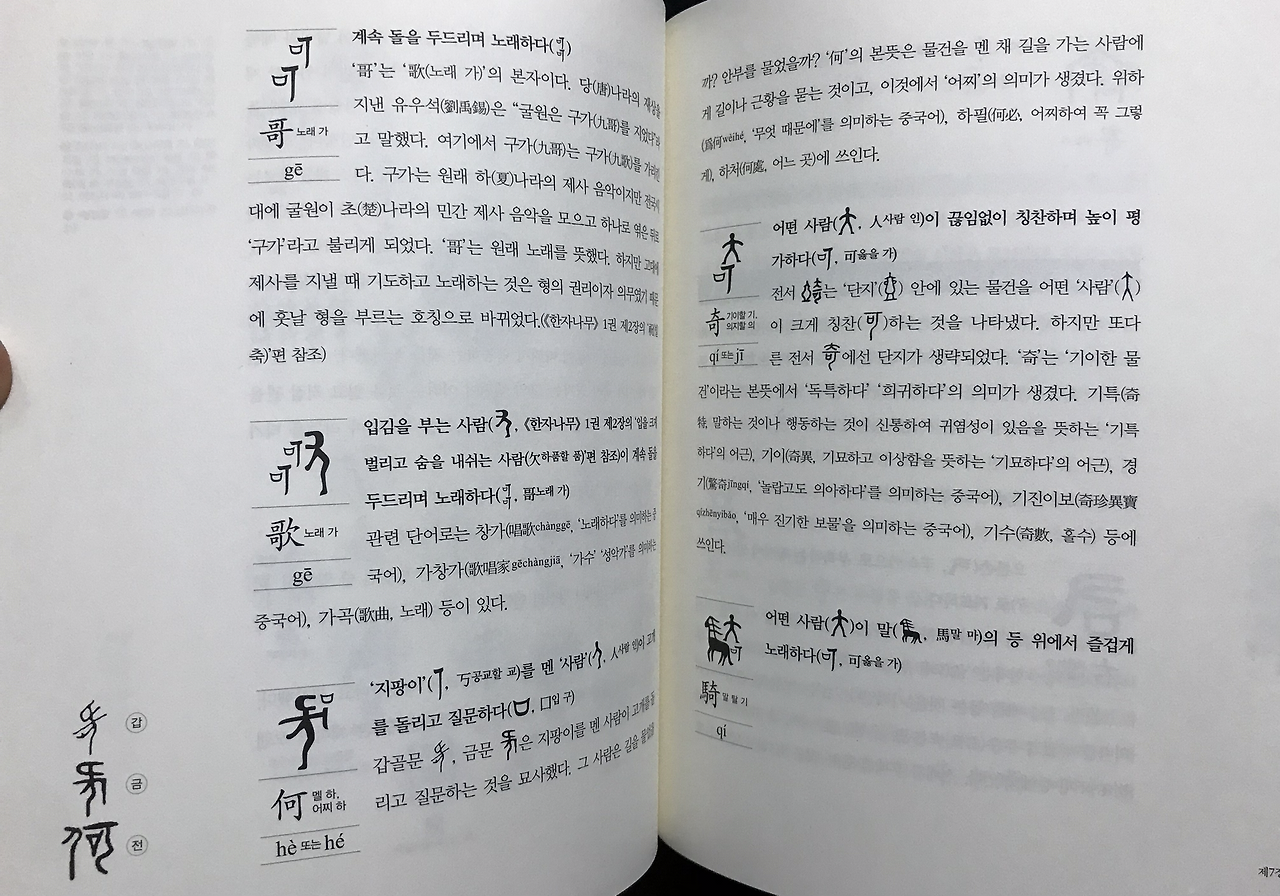 계속 돌을 두드리며 노래하다( )
哥 노래 가
gē
'哥'는 '歌(노래 가)'의 본자이다. 당(唐)나라의 재상을
지낸 유우석(劉禹錫)은 "굴원은 구가(九哥)를 지었다"라
고 말했다. 여기에서 구가(九哥)는 구가(九歌)를 가리킨
다. 구가는 원래 하(夏)나라의 제사 음악이지만 전국시
대에 굴원이 초(楚)나라의 민간 제사 음악을 모으고 하나로 엮은 뒤로
'구가'라고 불리게 되었다. '哥'는 원래 노래를 뜻했다. 하지만 고대에
제사를 지낼 때 기도하고 노래하는 것은 형의 권리이자 의무였기 때문
에 훗날 형을 부르는 호칭으로 바뀌었다.(《한자나무》 1권 제2장의
축'편 참조)
입김을 부는 사람( , 《한자나무》 1권 제2장의 '입을 크게
벌리고 숨을 내쉬는 사람(欠하품할 품)'편 참조)이 계속 돌을
두드리며 노래하다( , 哥노래 가)
歌 노래 가
gē
관련 단어로는 창가(唱歌chànggē, '노래하다'를 의미하는 중
국어), 가창가(歌唱家gēchàngjiā, '가수' '성악가'를 의미하는
중국어), 가곡(歌曲, 노래) 등이 있다.
'지팡이'( , 丂공교할 교)를 멘 '사람'( , 人사람 인)이 고개
를 돌리고 질문하다( , 口입 구)
何 멜 하, 어찌 하
hè 또는 hé
갑골문 , 금문 은 지팡이를 멘 사람이 고개를 돌
리고 질문하는 것을 묘사했다. 그 사람은 길을 물었을
갑
금
전
까? 안부를 물었을까? '何'의 본뜻은 물건을 멘 채 길을 가는 사람에
게 길이나 근황을 묻는 것이고, 이것에서 '어찌'의 의미가 생겼다. 위하
(爲何wèihé, '무엇 때문에'를 의미하는 중국어), 하필(何必, 어찌하여 꼭 그렇
게), 하처(何處, 어느 곳)에 쓰인다.
어떤 사람( , 人사람 인)이 끊임없이 칭찬하며 높이 평
가하다( , 可옳을 가)
奇 기이할 기, 의지할 의
qí 또는 jī
전서 는 '단지'( ) 안에 있는 물건을 어떤 '사람'( )
이 크게 칭찬( )하는 것을 나타냈다. 하지만 또다
른 전서 에선 단지가 생략되었다. '奇'는 '기이한 물
건'이라는 본뜻에서 '독특하다' '희귀하다'의 의미가 생겼다. 기특(奇
特, 말하는 것이나 행동하는 것이 신통하여 귀염성이 있음을 뜻하는 '기특
하다'의 어근), 기이(奇異, 기묘하고 이상함을 뜻하는 '기묘하다'의 어근), 경
기(驚奇jīngqí, '놀랍고도 의아하다'를 의미하는 중국어), 기진이보(奇珍異寶
qízhēnyìbǎo, '매우 진기한 보물'을 의미하는 중국어), 기수(奇數, 홀수) 등에
쓰인다.
어떤 사람( )이 말( , 馬말 마)의 등 위에서 즐겁게
노래하다( , 可옳을 가)
騎 말 탈 기
qí
제7장